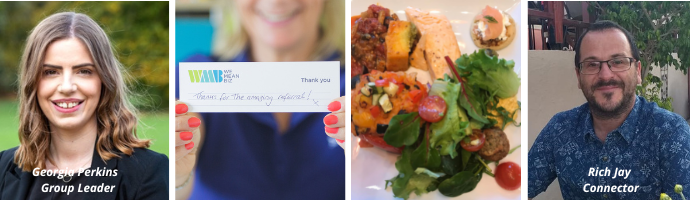 Georgia Perkins
Group Leader
WMB
WE
MEAN
BIZ
Thank you
Thanks for the amazing referral! x
Rich Jay
Connector